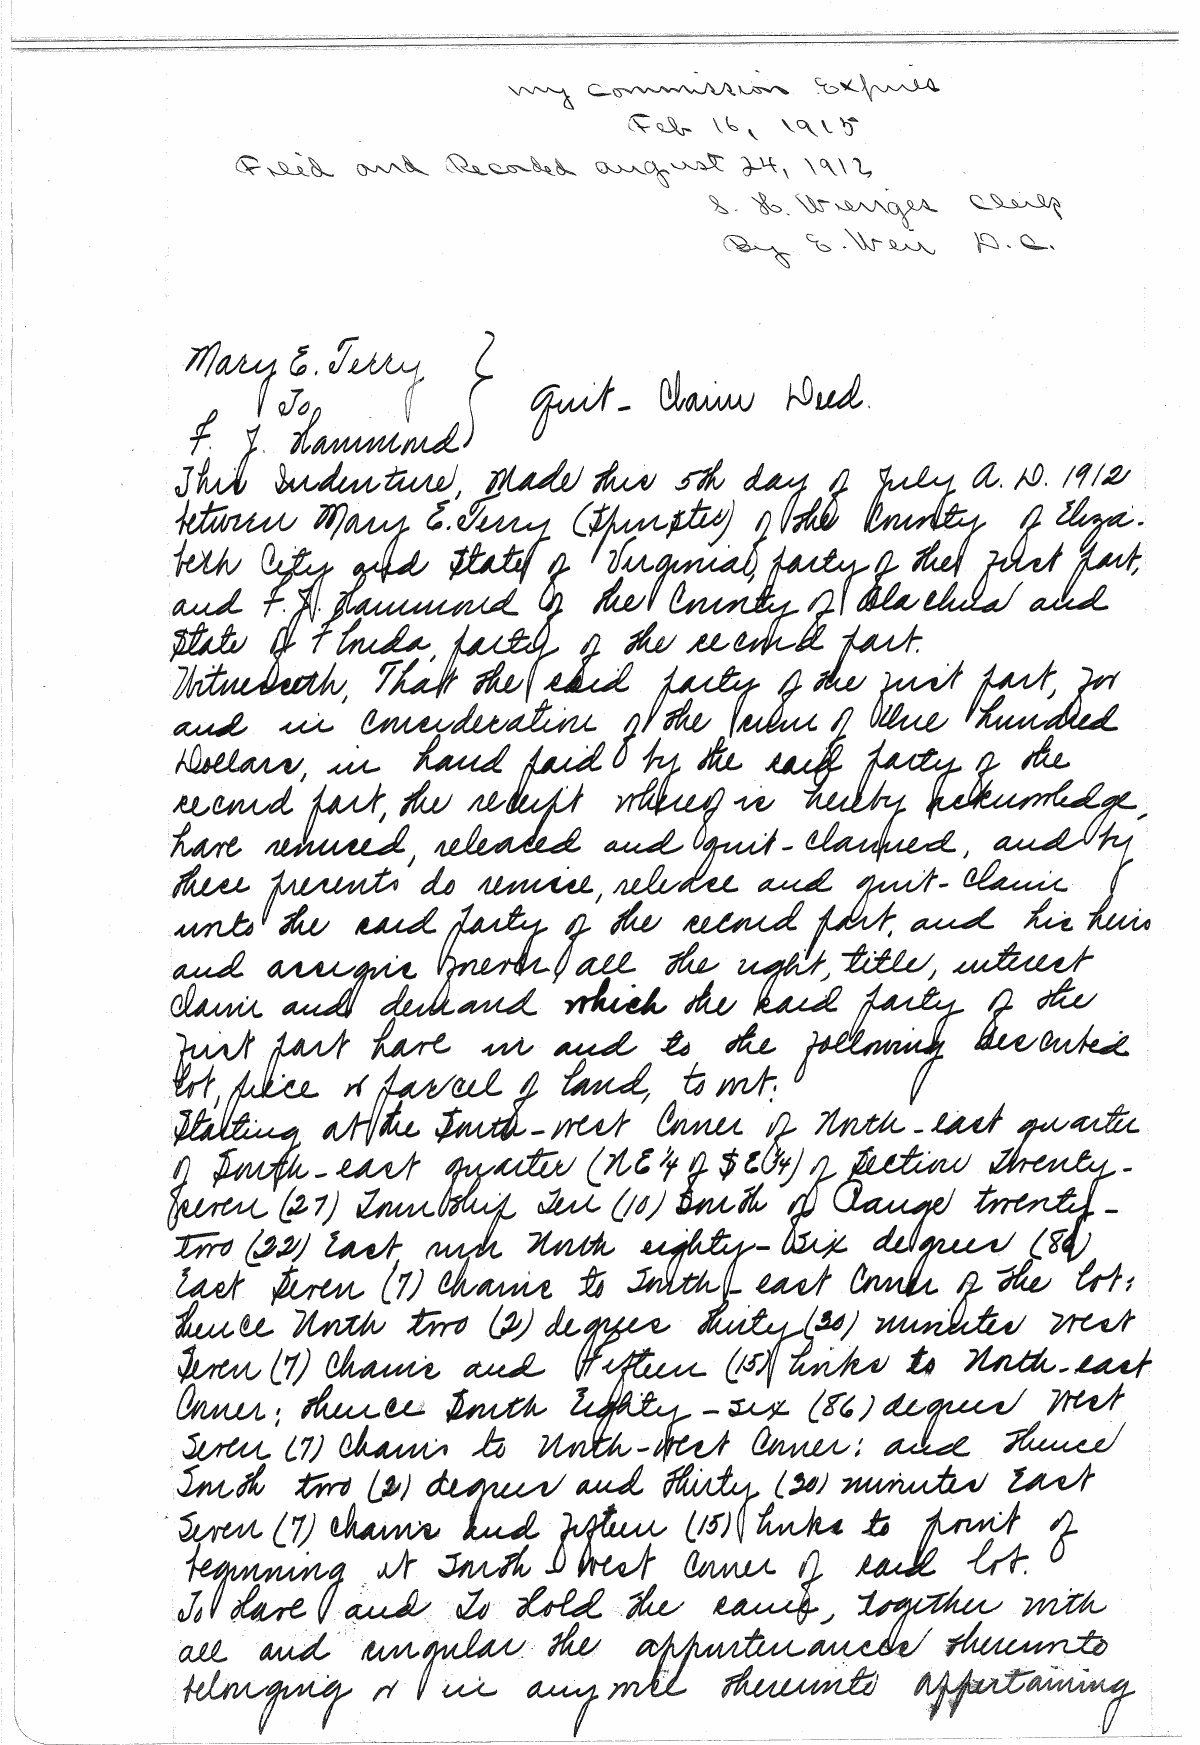 My Commission Expires
Feb 16, 1915
Filed and Recorded August 24, 1912
S. H. Wienges Clerk
By E. Weir D.C.
Mary E. Terry
To
F. J. Hammond
Quit-Claim Deed.
This Indenture, Made this 5th day of July A.D. 1912
between Mary E. Terry (Spinster) of the County of Eliza-
beth City and State of Virginia, party of the first part,
and F. J. Hammond of the County of Alachua and
State of Florida, party of the second part.
Witnesseth, That the said party of the first part, for
and in consideration of the sum of One hundred
Dollars, in hand paid by the said party of the
second part, the receipt whereof is hereby acknowledge,
have remised, released and quit-claimed, and by
these presents do remise, release and quit-claim
unto the said party of the second part, and his heirs
and assigns forever, all the right, title, interest
claim and demand which the said party of the
first part have in and to the following described
lot, piece or parcel of land, to wit:
Starting at the South-west Corner of North-east quarter
of South-east quarter (NE¼ of SE¼) of Section Twenty-
seven (27) Township Ten (10) South of Range twenty-
two (22) East, run North eighty-six degrees (86)
East Seven (7) Chains to South-east Corner of the lot;
thence North two (2) degrees thirty (30) minutes West
Seven (7) Chains and Fifteen (15) links to North-east
Corner; thence South Eighty-six (86) degrees West
Seven (7) Chains to North-West Corner; and thence
South two (2) degrees and thirty (30) minutes East
Seven (7) Chains and fifteen (15) links to point of
beginning at South West Corner of said lot.
To Have and To Hold the same, together with
all and singular the appurtenances thereunto
belonging or in anywise thereunto appertaining